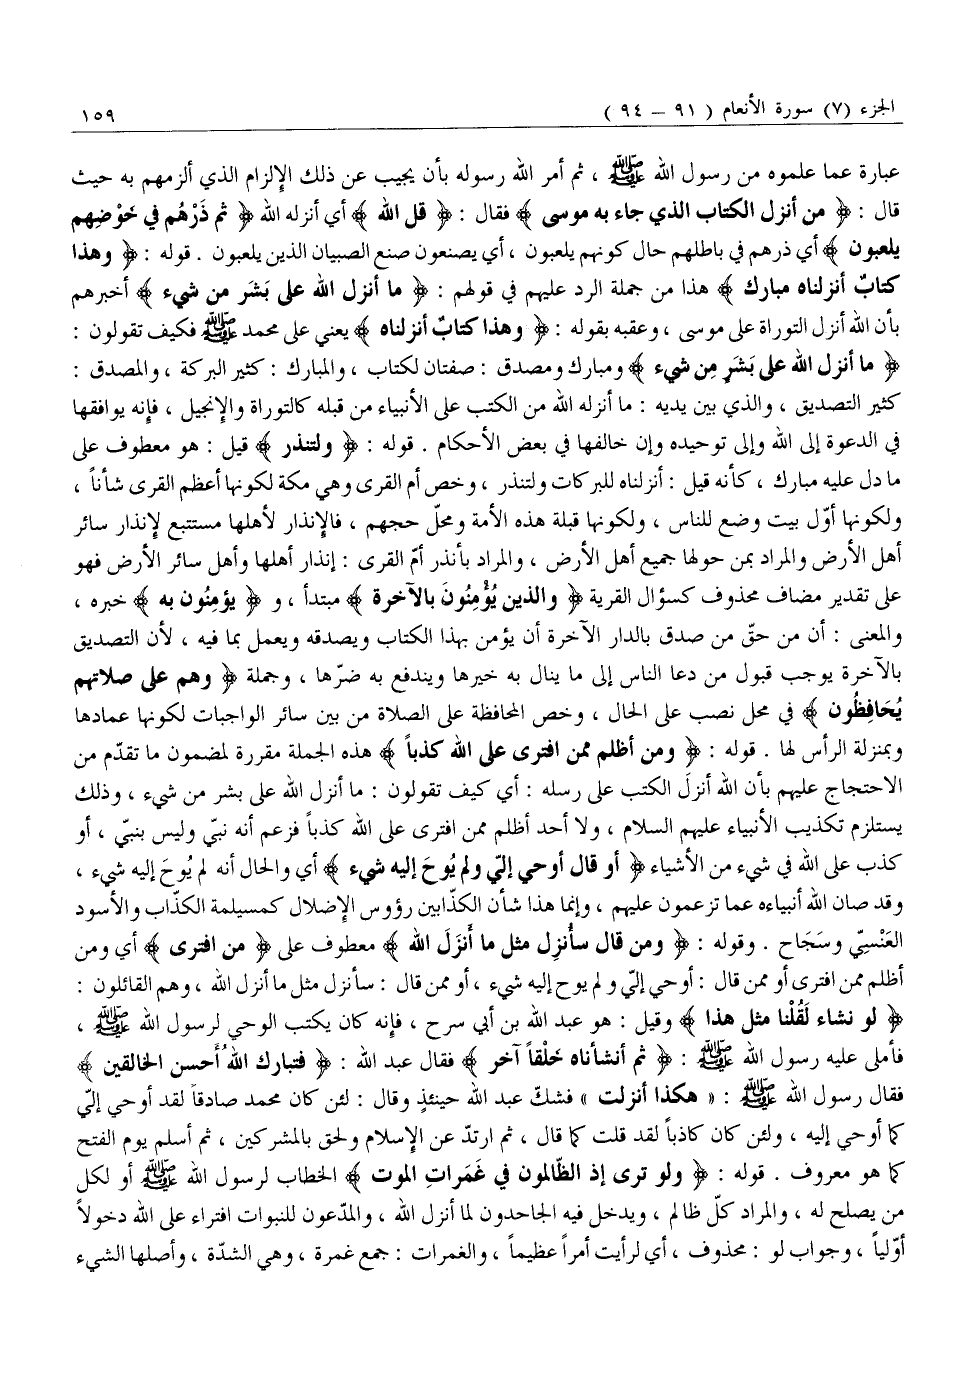 الجزء (٧) سورة الأنعام ( ٩١ – ٩٤ ) ١٥٩
عبارة عما علموه من رسول الله ﷺ ، ثم أمر الله رسوله بأن يجيب عن ذلك الإلزام الذي ألزمهم به حيث
قال : ﴿ من أنزل الكتاب الذي جاء به موسى ﴾ فقال : ﴿ قل الله ﴾ أي أنزله الله ﴿ ثم ذَرْهُم في خَوْضِهم
يلعبون ﴾ أي ذرهم في باطلهم حال كونهم يلعبون ، أي يصنعون صنع الصبيان الذين يلعبون . قوله : ﴿ وهذا
كتابٌ أنزلناه مبارك ﴾ هذا من جملة الرد عليهم في قولهم : ﴿ ما أنزل الله على بَشَر من شيء ﴾ أخبرهم
بأن الله أنزل التوراة على موسى ، وعقبه بقوله : ﴿ وهذا كتابٌ أنزلناه ﴾ يعني على محمد ﷺ فكيف تقولون :
﴿ ما أنزل الله على بَشَرٍ مِن شيء ﴾ ومبارك ومصدق : صفتان لكتاب ، والمبارك : كثير البركة ، والمصدق :
كثير التصديق ، والذي بين يديه : ما أنزله الله من الكتب على الأنبياء من قبله كالتوراة والإنجيل ، فإنه يوافقها
في الدعوة إلى الله وإلى توحيده وإن خالفها في بعض الأحكام . قوله : ﴿ ولتنذر ﴾ قيل : هو معطوف على
ما دل عليه مبارك ، كأنه قيل : أنزلناه للبركات ولتنذر ، وخص أم القرى وهي مكة لكونها أعظم القرى شأناً ،
ولكونها أوّل بيت وضع للناس ، ولكونها قبلة هذه الأمة ومحلّ حجهم ، فالإنذار لأهلها مستتبع لإنذار سائر
أهل الأرض والمراد بمن حولها جميع أهل الأرض ، والمراد بأنذر أمّ القرى : إنذار أهلها وأهل سائر الأرض فهو
على تقدير مضاف محذوف كسؤال القرية ﴿ والذين يُؤْمِنُونَ بالآخرة ﴾ مبتدأ ، و ﴿ يؤمِنُون به ﴾ خبره ،
والمعنى : أن من حقّ من صدق بالدار الآخرة أن يؤمن بهذا الكتاب ويصدقه ويعمل بما فيه ، لأن التصديق
بالآخرة يوجب قبول من دعا الناس إلى ما ينال به خيرها ويندفع به ضرّها ، وجملة ﴿ وهم على صلاتهم
يُحَافِظُون ﴾ في محل نصب على الحال ، وخص المحافظة على الصلاة من بين سائر الواجبات لكونها عمادها
وبمنزلة الرأس لها . قوله : ﴿ ومن أظلم ممن افترى على الله كذباً ﴾ هذه الجملة مقررة لمضمون ما تقدّم من
الاحتجاج عليهم بأن الله أنزلَ الكتب على رسله : أي كيف تقولون : ما أنزل الله على بشر من شيء ، وذلك
يستلزم تكذيب الأنبياء عليهم السلام ، ولا أحد أظلم ممن افترى على الله كذباً فزعم أنه نبيّ وليس بنبيّ ، أو
كذب على الله في شيء من الأشياء ﴿ أو قال أوحي إليّ ولم يُوحَ إليه شيء ﴾ أي والحال أنه لم يُوحَ إليه شيء ،
وقد صان الله أنبياءه عما تزعمون عليهم ، وإنما هذا شأن الكذّابين رؤوس الإضلال كمسيلمة الكذّاب والأسود
العَنْسِيّ وسَجَاح . وقوله : ﴿ ومن قال سأُنزِل مثل ما أَنزَلَ الله ﴾ معطوف على ﴿ من افترى ﴾ أي ومن
أظلم ممن افترى أو ممن قال : أوحي إليّ و لم يوح إليه شيء ، أو ممن قال : سأنزل مثل ما أنزل الله ، وهم القائلون :
﴿ لو نشاء لَقُلْنا مثل هذا ﴾ وقيل : هو عبد الله بن أبي سرح ، فإنه كان يكتب الوحي لرسول الله ﷺ ،
فأملى عليه رسول الله ﷺ : ﴿ ثم أنشأناه خَلْقاً آخر ﴾ فقال عبد الله : ﴿ فتبارك اللهُ أَحسن الخالقين ﴾
فقال رسول الله ﷺ : « هكذا أنزلت » فشكّ عبد الله حينئذٍ وقال : لئن كان محمد صادقاً لقد أوحي إليّ
كما أوحي إليه ، ولئن كان كاذباً لقد قلت كما قال ، ثم ارتدّ عن الإسلام ولحق بالمشركين ، ثم أسلم يوم الفتح
كما هو معروف . قوله : ﴿ ولو ترى إذ الظّالمون في غَمَراتِ الموت ﴾ الخطاب لرسول الله ﷺ أو لكل
من يصلح له ، والمراد كلّ ظالم ، ويدخل فيه الجاحدون لما أنزل الله ، والمدّعون للنبوات افتراء على الله دخولاً
أوّلياً ، وجواب لو : محذوف ، أي لرأيت أمراً عظيماً ، والغمرات : جمع غمرة ، وهي الشدّة ، وأصلها الشيء